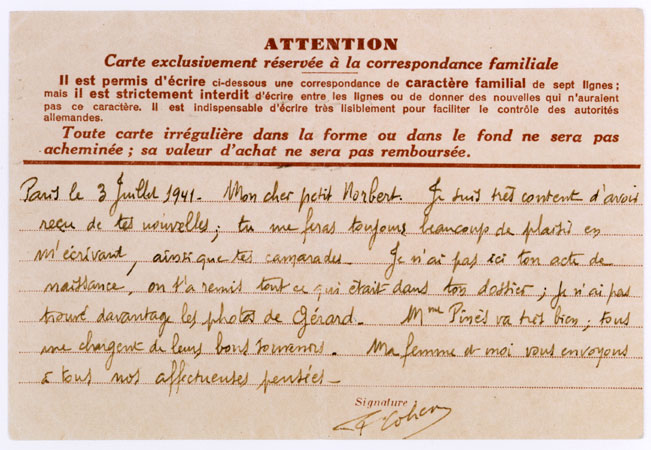 ATTENTION
Carte exclusivement réservée à la correspondance familiale
Il est permis d'écrire ci-dessous une correspondance de caractère familial de sept lignes;
mais il est strictement interdit d'écrire entre les lignes ou de donner des nouvelles qui n'auraient
pas ce caractère. Il est indispensable d'écrire très lisiblement pour faciliter le contrôle des autorités
allemandes.
Toute carte irrégulière dans la forme ou dans le fond ne sera pas
acheminée; sa valeur d'achat ne sera pas remboursée.
Paris le 3 Juillet 1941. Mon cher petit Norbert. Je suis très content d'avoir
reçu de tes nouvelles; tu me feras toujours beaucoup de plaisir en
m'écrivant, ainsi que tes camarades. Je n'ai pas ici ton acte de
naissance, on t'a remis tout ce qui était dans ton dossier; je n'ai pas
trouvé davantage les photos de Gérard. Mme Pinès va très bien; tous
me chargent de leurs bons souvenirs. Ma femme et moi vous envoyons
à tous nos affectueuses pensées.
Signature :
Cohen